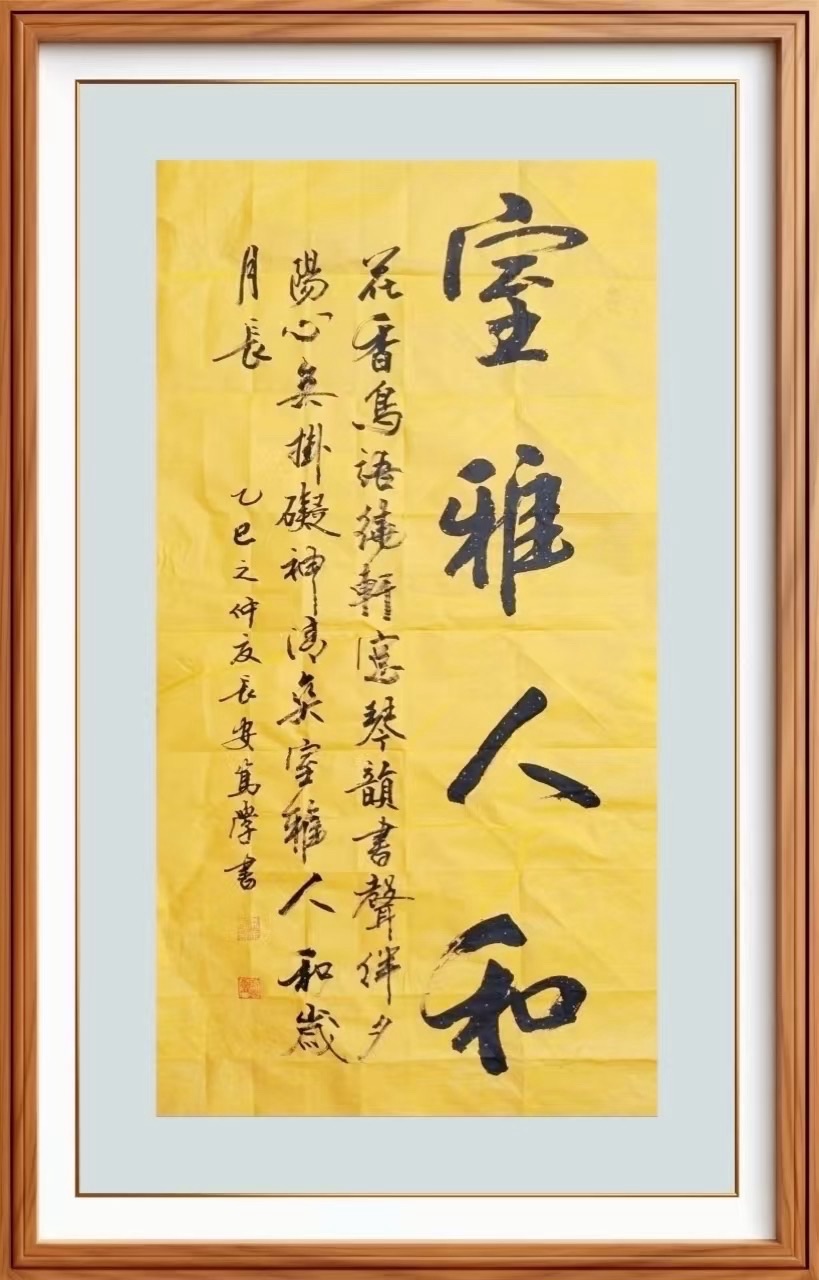 室雅人和
花香鳥語繞軒窓琴韻書聲伴夕
陽心無掛礙神清爽室雅人和歲
月長
乙巳之仲夏長安篤學書